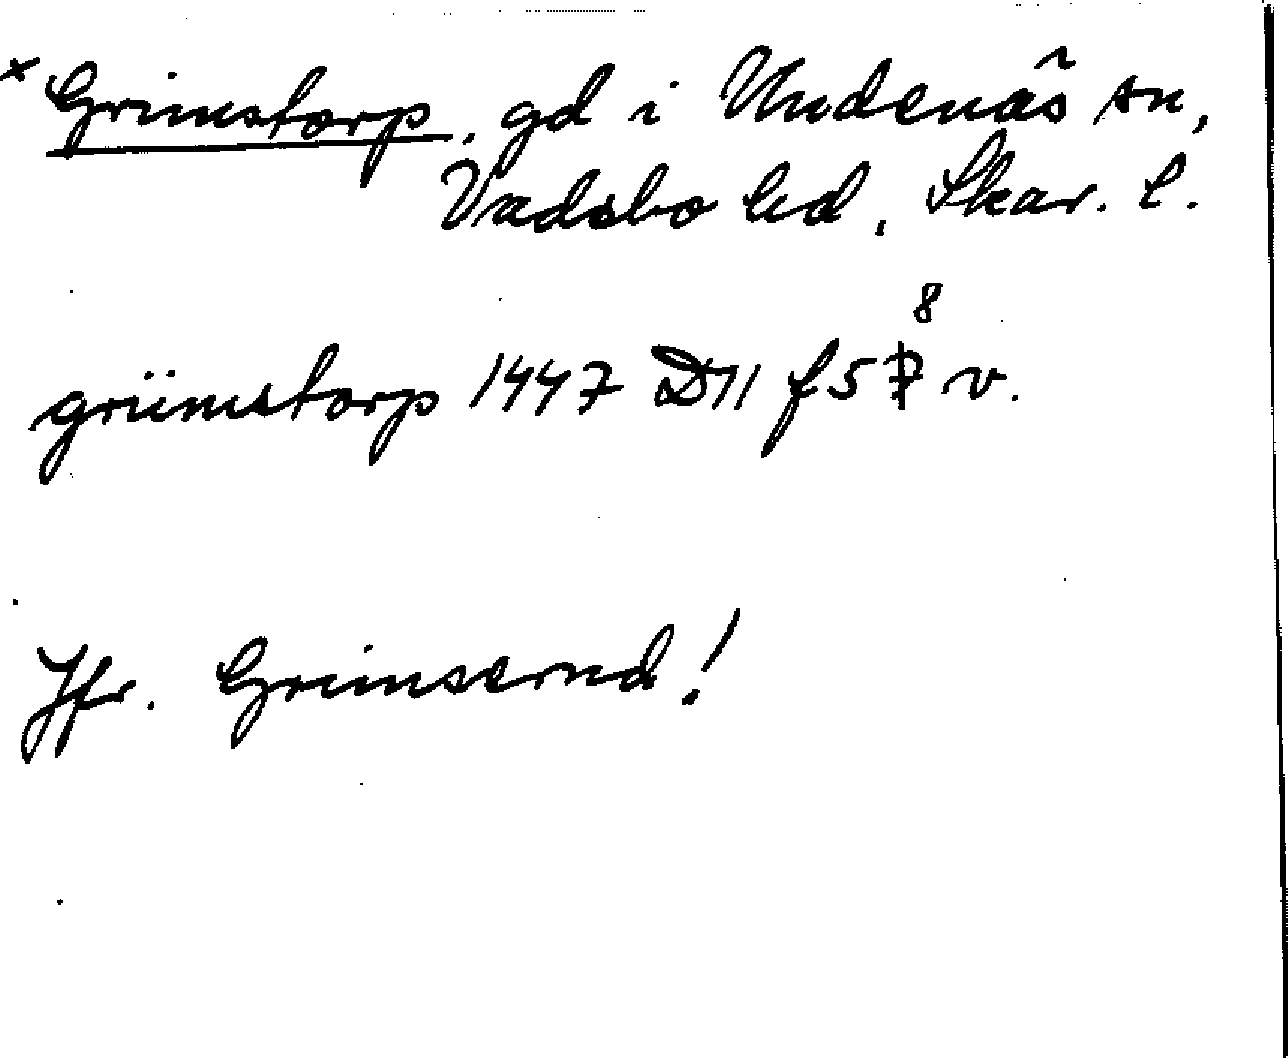 × Grimstorp, gd i Undenäs sn,
Vadsbo hd, Skar. l.
griimstorp 1447 D11 f 58 v.
Jfr. Grimserud!